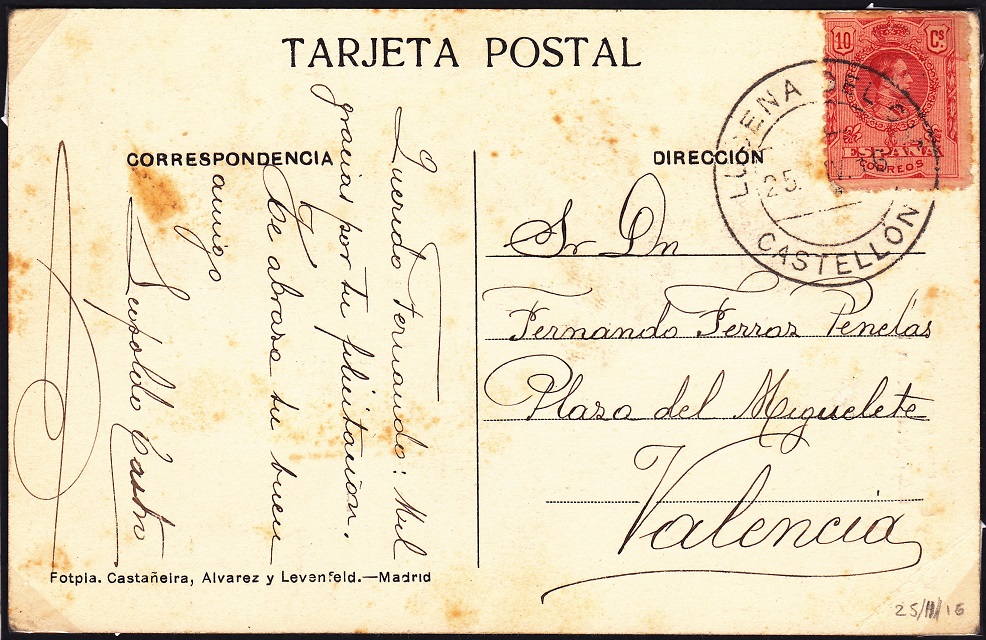 TARJETA POSTAL
CORRESPONDENCIA
Querido Fernando: Mil
gracias por tu felicitación.
Te abraza tu buen
amigo
Leopoldo Castro
DIRECCIÓN
Sr Dn
Fernando Ferraz Penelas
Plaza del Miguelete
Valencia
10 Cs
ESPAÑA
CORREOS
LUCENA DEL CID
25.
CASTELLÓN
Fotpia. Castañeira, Alvarez y Levenfeld.—Madrid